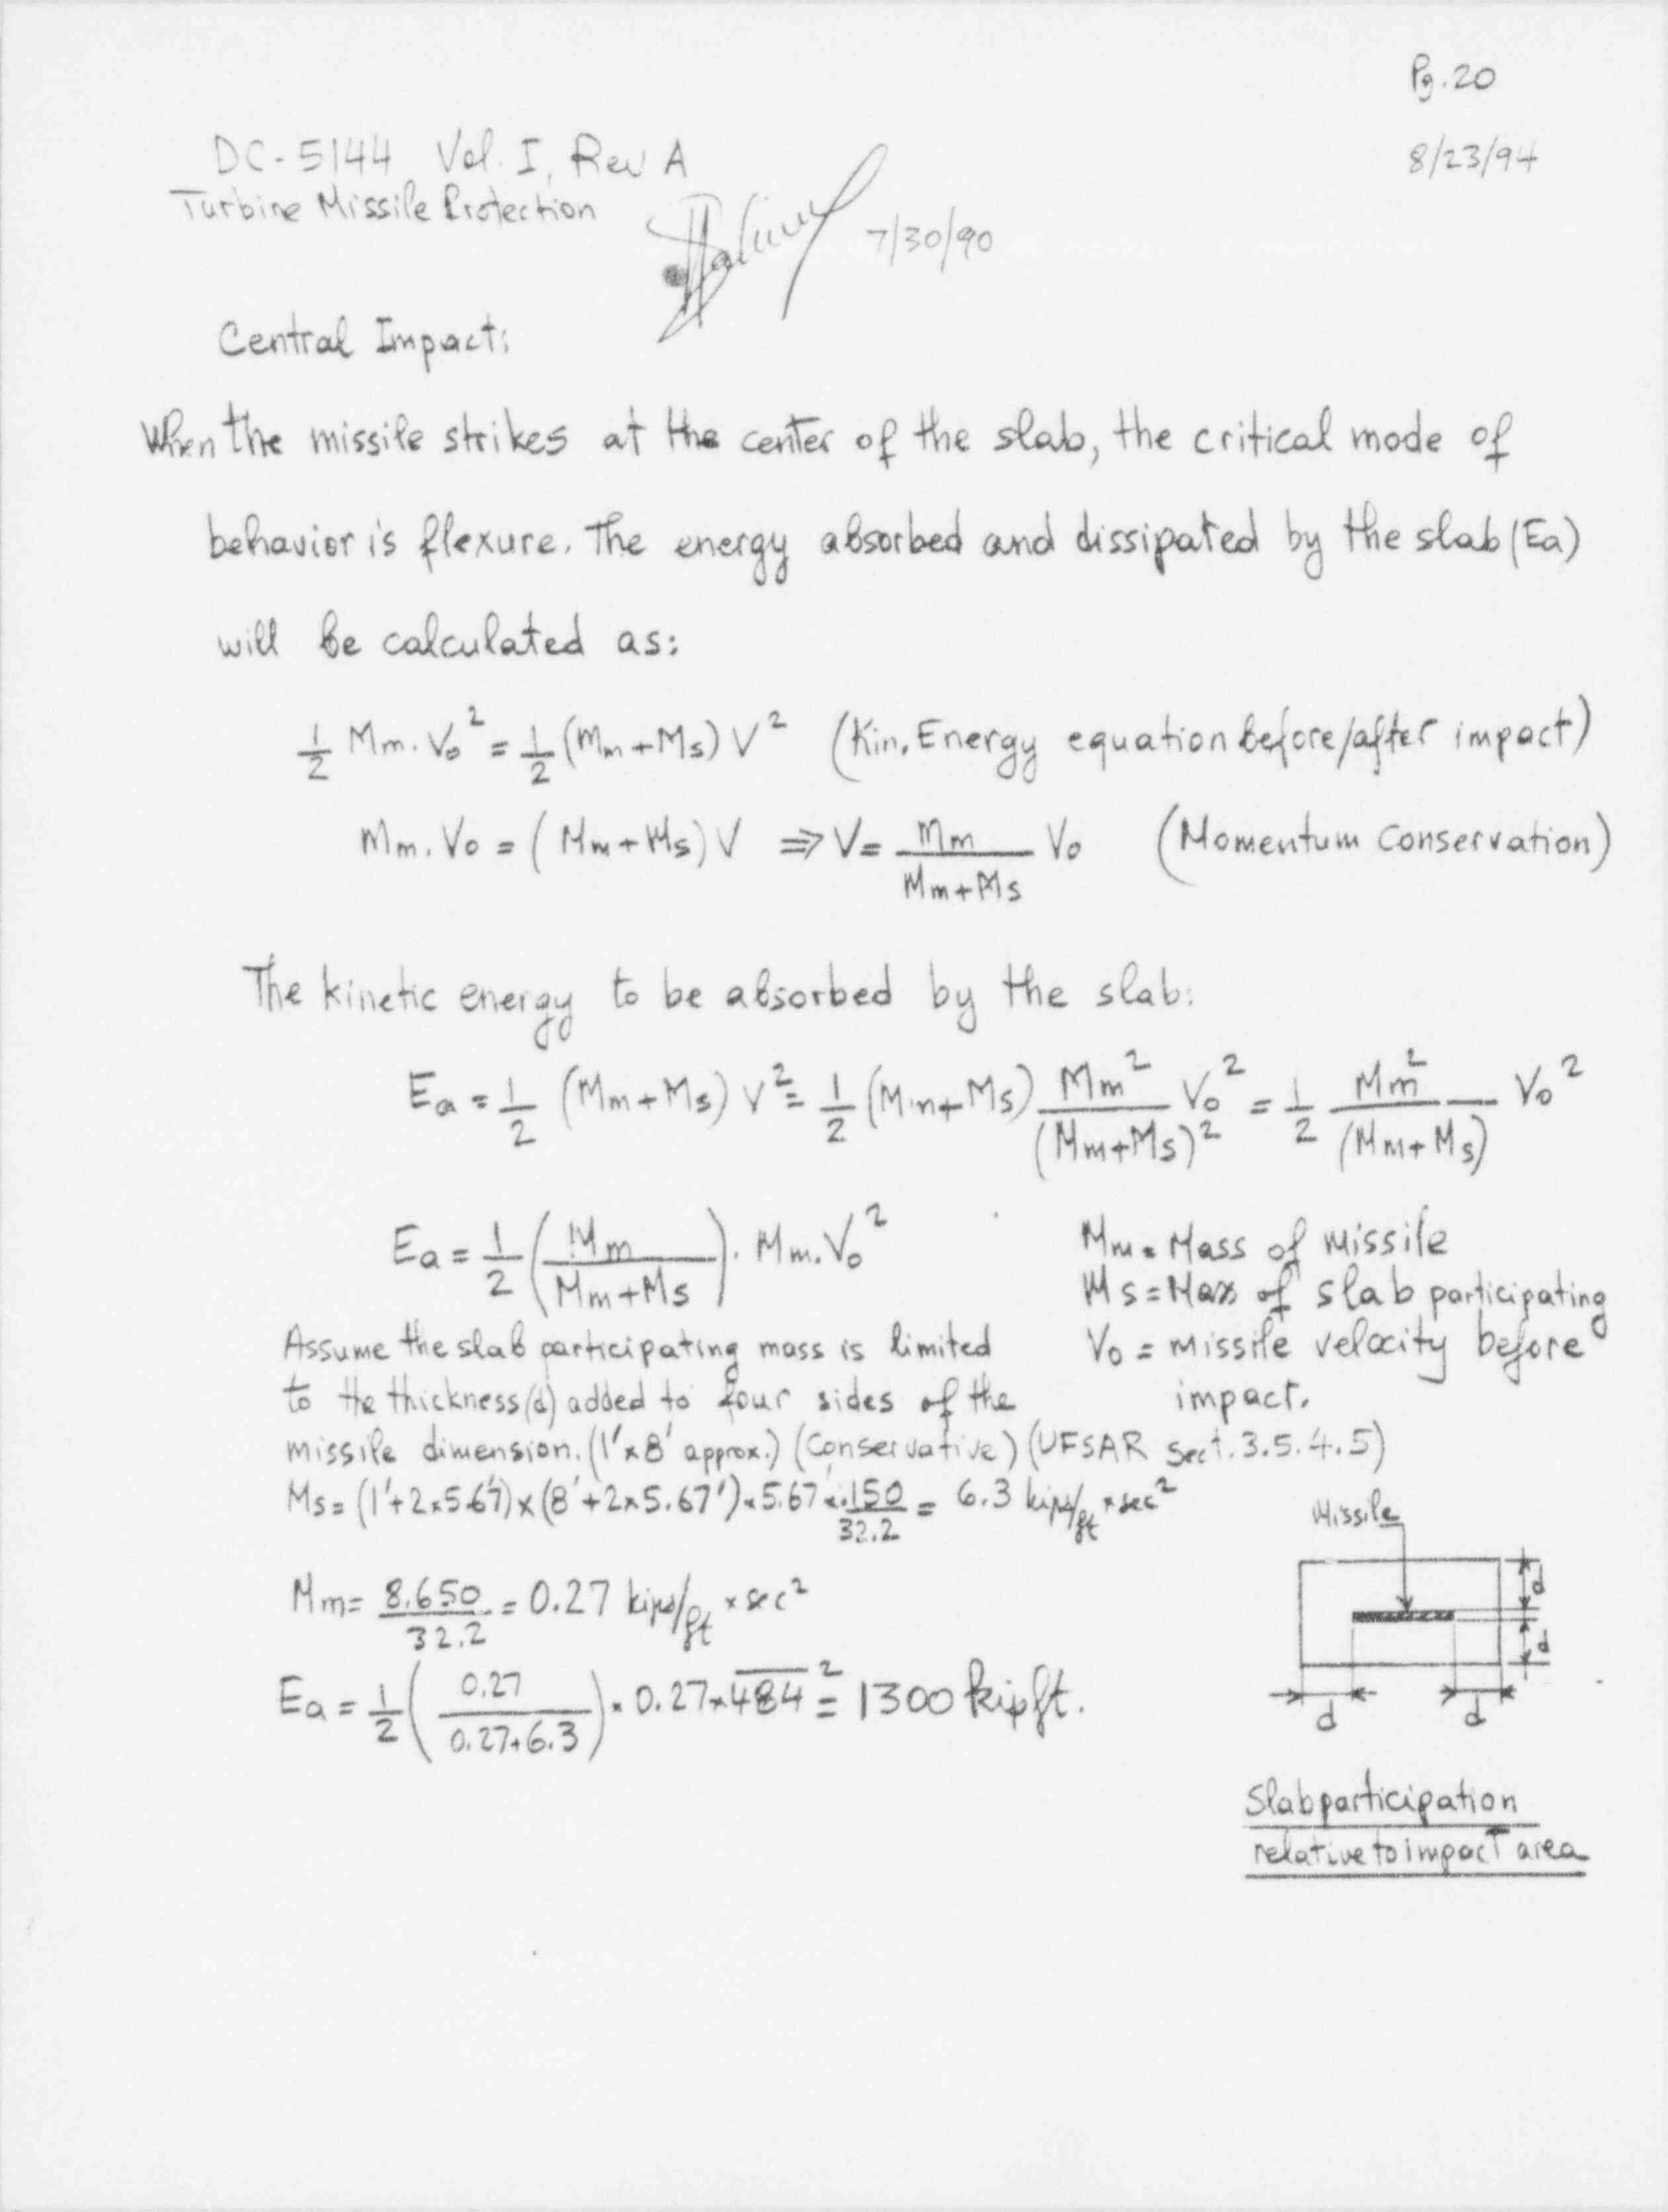 Pg.20
8/23/94
DC-5144 Vol. I, Rev A
Turbine Missile Protection
7/30/90
Central Impact:
When the missile strikes at the center of the slab, the critical mode of
behavior is flexure. The energy absorbed and dissipated by the slab (Ea)
will be calculated as:
1/2 Mm. V₀² = 1/2 (Mm + Ms) V² (Kin. Energy equation before/after impact)
Mm. V₀ = (Mm + Ms) V ⇒ V = Mm/(Mm + Ms) V₀ (Momentum Conservation)
The kinetic energy to be absorbed by the slab:
Ea = 1/2 (Mm + Ms) V² = 1/2 (Mm + Ms) Mm²/(Mm + Ms)² V₀² = 1/2 Mm²/(Mm + Ms) V₀²
Ea = 1/2 (Mm/(Mm + Ms)) . Mm. V₀²
Mm = Mass of missile
Ms = Mass of slab participating
V₀ = missile velocity before
impact.
Assume the slab participating mass is limited
to the thickness (d) added to four sides of the
missile dimension. (1'x8' approx.) (Conservative) (UFSAR sect. 3.5.4.5)
Ms = (1'+2x5.67') x (8'+2x5.67') x 5.67' x .150/32.2 = 6.3 kips/ft x sec²
Mm = 8.650/32.2 = 0.27 kips/ft x sec²
Ea = 1/2 (0.27/(0.27+6.3)) x 0.27 x 484² = 1300 kipft.
Missile
d
d
d
d
Slab participation
relative to impact area